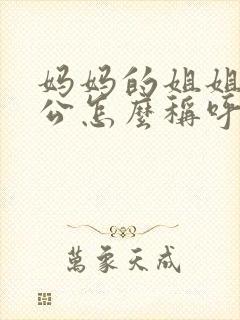 妈妈的姐姐
公怎麼稱呼
萬象天成